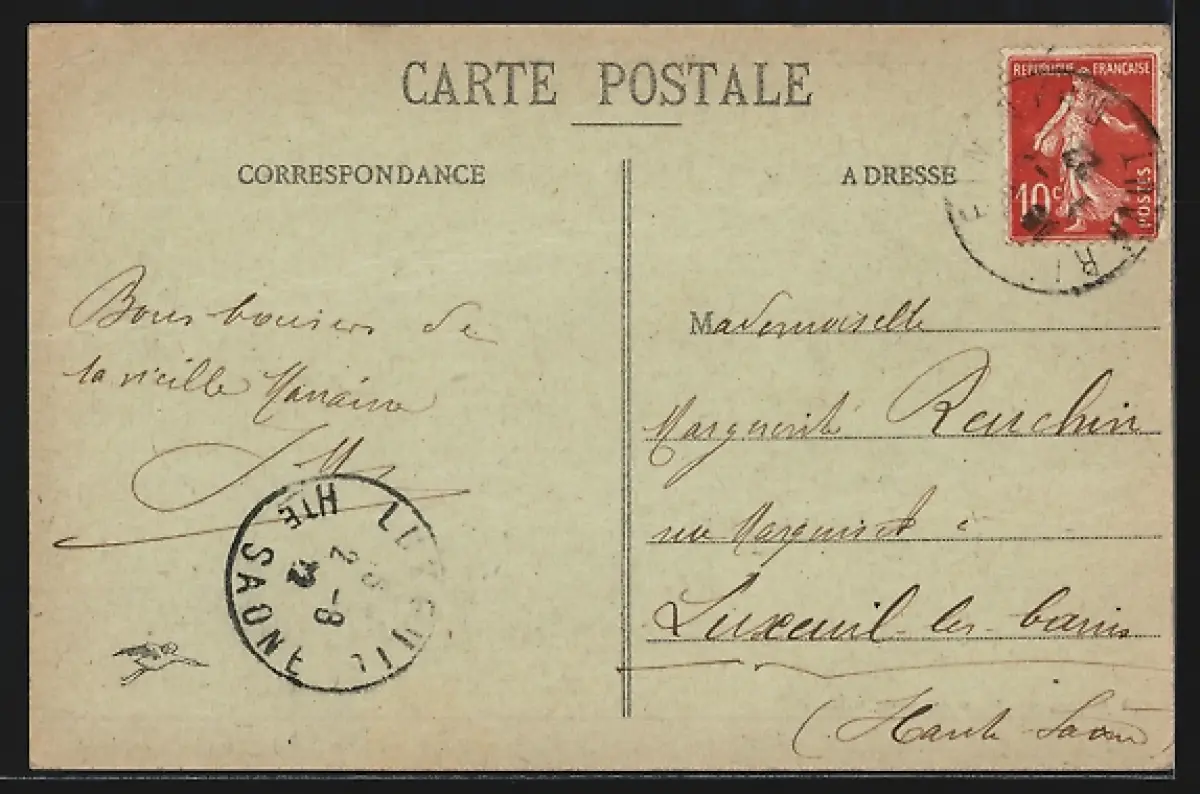 CARTE POSTALE
CORRESPONDANCE
ADRESSE
REPUBLIQUE FRANÇAISE
10c
POSTES
Bons baisers de
la vieille Marraine
Mademoiselle
Marguerite
rue
Luxeuil-les-bains
(Haute Saône)
LUXEUIL
HTE SAONE
2-8